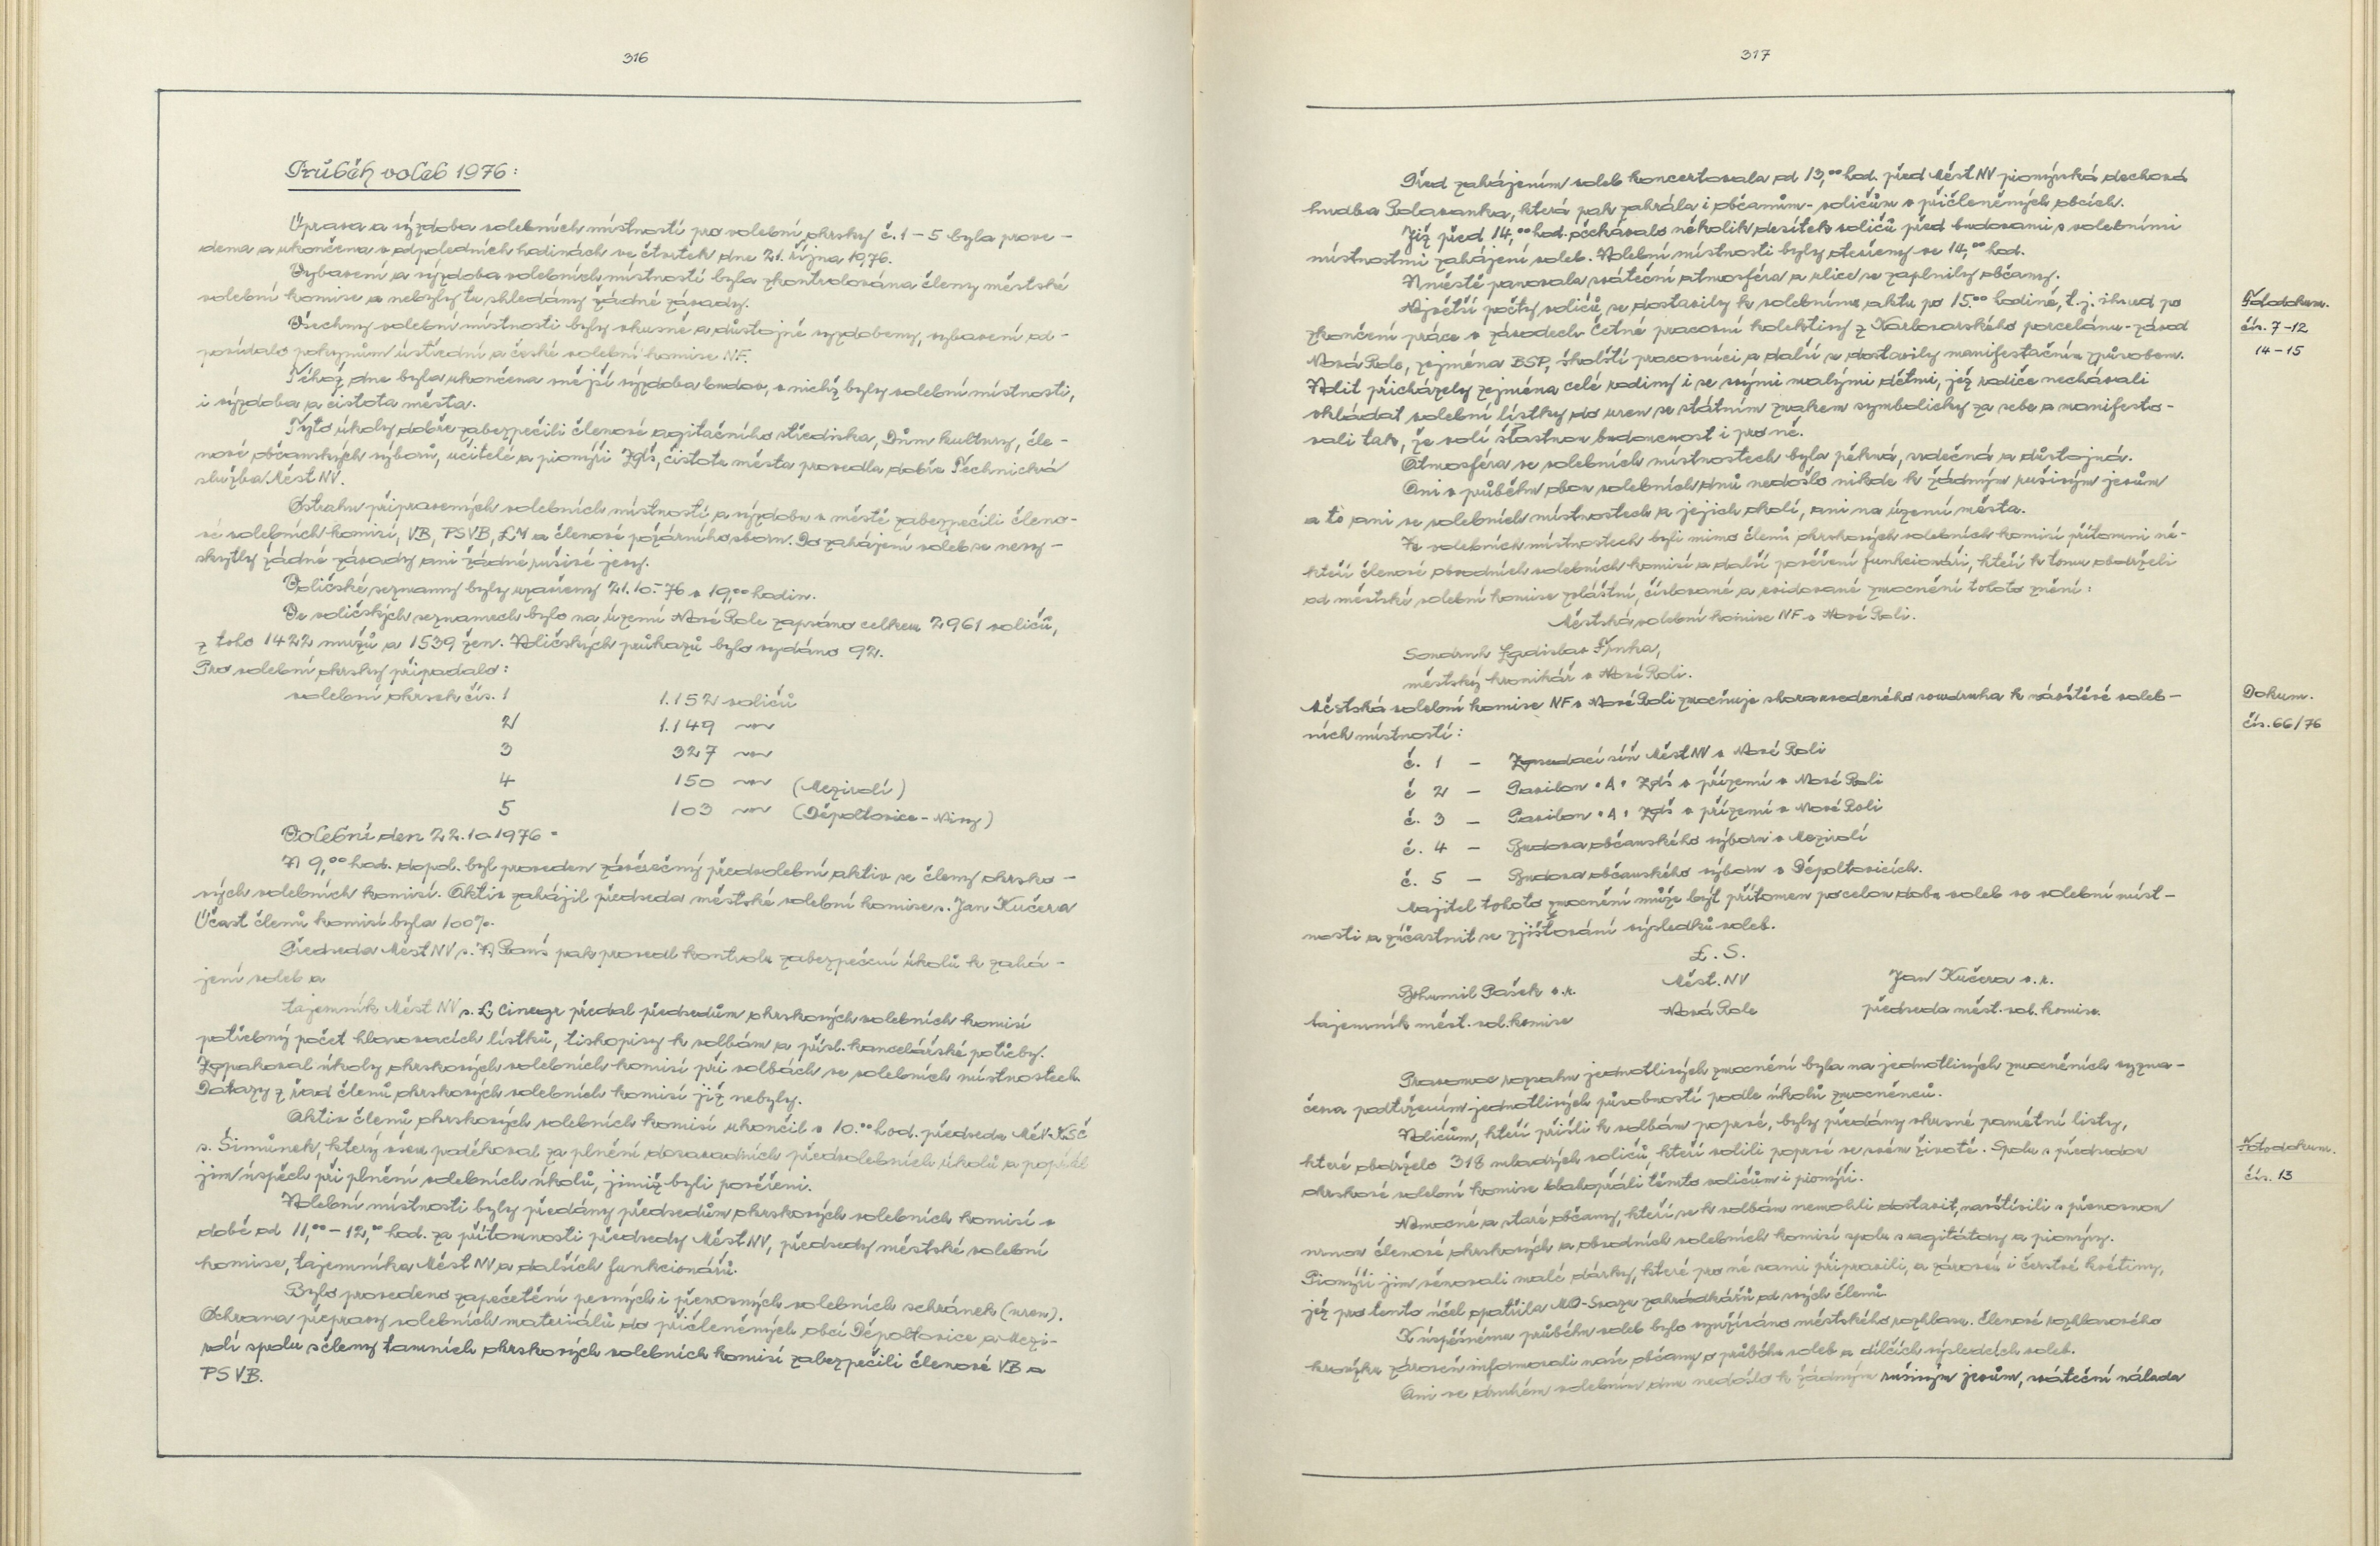 316
Průběh voleb 1976:
Úprava a výzdoba volebních místností pro volební okrsky č. 1 – 5 byla prove –
dena a ukončena v odpoledních hodinách ve čtvrtek dne 21. října 1976.
Vybavení a výzdoba volebních místností byla zkontrolována členy městské
volební komise a nebyly tu shledány žádné závady.
Všechny volební místnosti byly vkusně a důstojně vyzdobeny, vybavení od –
povídalo pokynům ústřední a české volební komise NF.
Téhož dne byla ukončena vnější výzdoba budov, v nichž byly volební místnosti,
i výzdoba a čistota města.
Tyto úkoly dobře zabezpečili členové agitačního střediska, Dům kultury, čle –
nové občanských výborů, učitelé a pionýři ZDŠ, čistotu města provedla dobře Technická
služba Měst NV.
Ostrahu připravených volebních místností a výzdobu v městě zabezpečili členo-
vé volebních komisí, VB, PSVB, LM a členové požárního sboru. Do zahájení voleb se nevy –
skytly žádné závady ani žádné rušivé jevy.
Voličské seznamy byly uzavřeny 21.10.–76 v 19,00 hodin.
Ve voličských seznamech bylo na území Nové Role zapsáno celkem 2961 voličů,
z toho 1422 mužů a 1539 žen. Voličských průkazů bylo vydáno 92.
Pro volební okrsky připadalo:
volební okrsek čís. 1 1.152 voličů
2 1.149 —„—
3 327 —„—
4 150 —„— (Mezirolí)
5 103 —„— (Děpoltovice – Nivy)
Volební den 22.10 1976 -
V 9,00 hod. dopol. byl proveden závěrečný předvolební aktiv se členy okrsko –
vých volebních komisí. Aktiv zahájil předseda městské volební komise s. Jan Kučera
Účast členů komisí byla 100%.
Předseda Měst NV s. V. Panš pak provedl kontrolu zabezpečení úkolů k zahá –
jení voleb a
tajemník Měst NV s. L. Cinegr předal předsedům okrskových volebních komisí
potřebný počet hlasovacích lístků, tiskopisy k volbám a přísl. kancelářské potřeby.
Zopakoval úkoly okrskových volebních komisí při volbách ve volebních místnostech.
Dotazy z řad členů okrskových volebních komisí již nebyly.
Aktiv členů okrskových volebních komisí ukončil v 10.00 hod. předseda MěV KSČ
s. Šimůnek, který všem poděkoval za plnění dosavadních předvolebních úkolů a popřál
jim úspěch při plnění volebních úkolů, jimiž byli pověřeni.
Volební místnosti byly předány předsedům okrskových volebních komisí v
době od 11,00 – 12,00 hod. za přítomnosti předsedy Měst NV, předsedy městské volební
komise, tajemníka Měst NV a dalších funkcionářů.
Bylo provedeno zapečetění pevných i přenosných volebních schránek (uren).
Ochranu přepravy volebních materiálů do přičleněných obcí Děpoltovice a Mezi-
rolí spolu s členy tamních okrskových volebních komisí zabezpečili členové VB a
PS VB.
317
Před zahájením voleb koncertovala od 13,00 hod. před Měst NV pionýrská dechová
hudba Rolavanka, která pak zahrála i občanům - voličům v přičleněných obcích.
Již před 14,00 hod. očekávalo několik desítek voličů před budovami s volebními
místnostmi zahájení voleb. Volební místnosti byly otevřeny ve 14,00 hod.
V městě panovala sváteční atmosféra a ulice se zaplnily občany.
Největší počty voličů se dostavily k volebnímu aktu po 15.00 hodině, t.j. ihned po
zkončení práce v závodech. Četné pracovní kolektivy z Karlovarského porcelánu - závod
Nová Role, zejména BSP, školští pracovníci a další se dostavily manifestačním způsobem.
Volit přicházely zejména celé rodiny i se svými malými dětmi, jež rodiče nechávali
vkládat volební lístky do uren se státním znakem symbolicky za sebe a manifesto –
vali tak, že volí šťastnou budoucnost i pro ně.
Atmosféra ve volebních místnostech byla pěkná, srdečná a důstojná.
Ani v průběhu obou volebních dnů nedošlo nikde k žádným rušivým jevům
a to ani ve volebních místnostech a jejich okolí, ani na území města.
Ve volebních místnostech byli mimo členů okrskových volebních komisí přítomni ně-
kteří členové obvodních volebních komisí a další pověření funkcionáři, kteří k tomu obdrželi
od městské volební komise zvláštní, číslované a evidované zmocnění tohoto znění:
Městská volební komise NF v Nové Roli.
Soudruh Ladislav
městský kronikář v Nové Roli.
Městská volební komise NF v Nové Roli zmocňuje shora uvedeného soudruha k návštěvě voleb –
ních místností:
č. 1 – Zasedací síň Měst NV v Nové Roli
č 2 – Pavilon "A" ZDŠ v přízemí v Nové Roli
č. 3 – Pavilon "A" ZDŠ v přízemí v Nové Roli
č. 4 – Budova občanského výboru v Mezirolí
č. 5 – Budova občanského výboru v Děpoltovicích.
Majitel tohoto zmocnění může být přítomen po celou dobu voleb ve volební míst –
nosti a zúčastnit se zjišťování výsledků voleb.
L. S.
Bohumil Pašek v.r. Měst. NV Jan Kučera v.r.
tajemník měst. vol. komise Nová Role předseda měst. vol. komise.
Pravomoc rozsahu jednotlivých zmocnění byla na jednotlivých zmocněních vyzna –
čena podtržením jednotlivých působností podle úkolů zmocněnců.
Voličům, kteří přišli k volbám poprvé, byly předány vkusné pamětní listy,
které obdrželo 318 mladých voličů kteří volili poprvé ve svém životě. Spolu s předsedou
okrskové volební komise blahopřáli těmto voličům i pionýři.
Nemocné a staré občany, kteří se k volbám nemohli dostavit, navštívili s přenosnou
urnou členové okrskových a obvodních volebních komisí spolu s agitátory a pionýry.
Pionýři jim věnovali malé dárky, které pro ně sami připravili, a zároveň i čerstvé květiny,
jež pro tento účel opatřila MO-Svazu zahrádkářů od svých členů.
K úspěšnému průběhu voleb bylo využíváno městského rozhlasu. Členové rozhlasového
kroužku zároveň informovali naše občany o průběhu voleb a dílčích výsledcích voleb.
Ani ve druhém volebním dnu nedošlo k žádným rušivým jevům, sváteční nálada
Fotodokum.
čís. 7 – 12
14 – 15
Dokum.
čís. 66/76
Fotodokum.
čís. 13